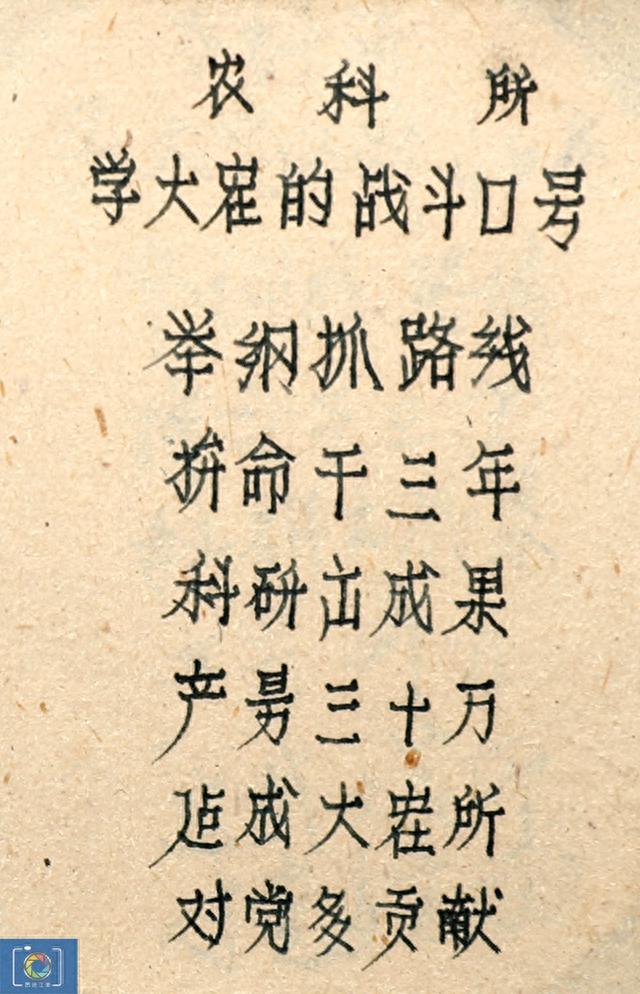 农科所
学大寨的战斗口号
举纲抓路线
拚命干三年
科研出成果
产量三十万
迠成大寨所
对党多贡献